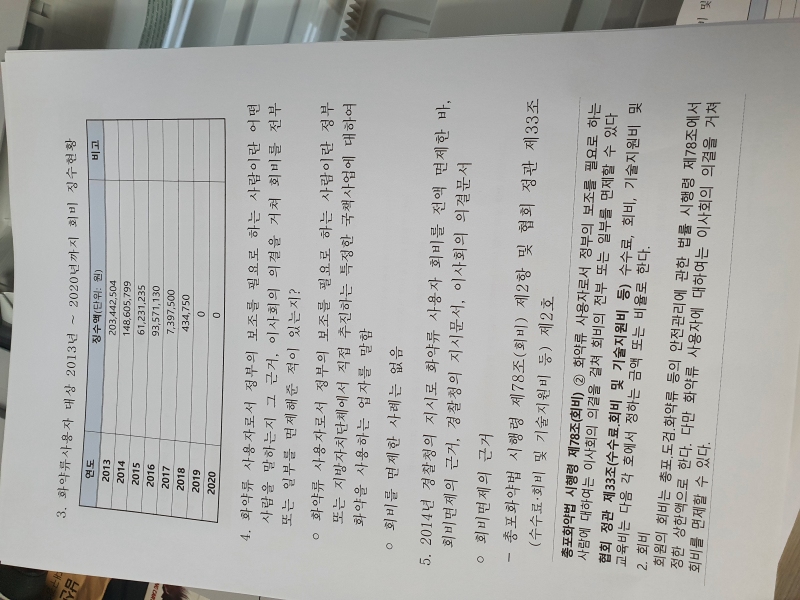 3. 화약류사용자 대상 2013년 ~ 2020년까지 회비 징수현황
연도 징수액(단위: 원) 비고
2013 203,442,504
2014 148,605,799
2015 61,231,235
2016 93,571,130
2017 7,397,500
2018 434,750
2019 0
2020 0
4. 화약류 사용자로서 정부의 보조를 필요로 하는 사람이란 어떤
사람을 말하는지 그 근거, 이사회의 의결을 거쳐 회비를 전부
또는 일부를 면제해준 적이 있는지?
○ 화약류 사용자로서 정부의 보조를 필요로 하는 사람이란 정부
또는 지방자치단체에서 직접 추진하는 특정한 국책사업에 대하여
화약을 사용하는 업자를 말함
○ 회비를 면제한 사례는 없음
5. 2014년 경찰청의 지시로 화약류 사용자 회비를 전액 면제한 바,
회비면제의 근거, 경찰청의 지시문서, 이사회의 의결문서
○ 회비면제의 근거
- 총포화약법 시행령 제78조(회비) 제2항 및 협회 정관 제33조
(수수료·회비 및 기술지원비 등) 제2호
총포화약법 시행령 제78조(회비) ② 화약류 사용자로서 정부의 보조를 필요로 하는
사람에 대하여는 이사회의 의결을 걸쳐 회비의 전부 또는 일부를 면제할 수 있다
협회 정관 제33조(수수료.회비 및 기술지원비 등) 수수료, 회비, 기술지원비 및
교육비는 다음 각 호에서 정하는 금액 또는 비율로 한다.
2. 회비
회원의 회비는 총포.도검.화약류 등의 안전관리에 관한 법률 시행령 제78조에서
정한 상한액으로 한다. 다만 화약류 사용자에 대하여는 이사회의 의결을 거쳐
회비를 면제할 수 있다.